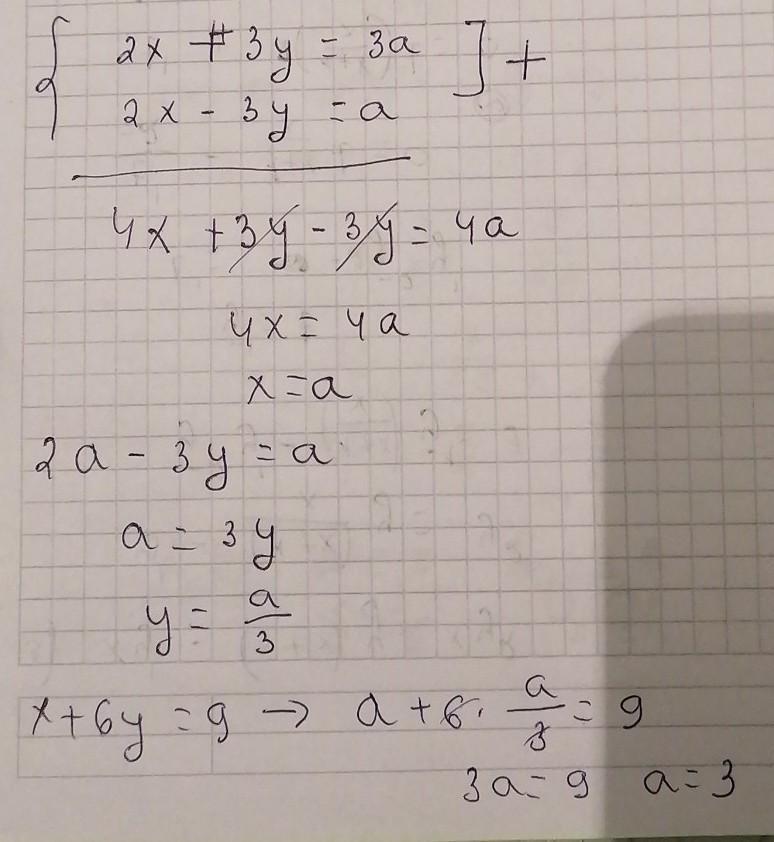 2x + 3y = 3a ] +
2x - 3y = a
4x + 3y - 3y = 4a
4x = 4a
x = a
2a - 3y = a
a = 3y
y = a/3
x + 6y = 9 → a + 6 · a/3 = 9
3a = 9 a = 3